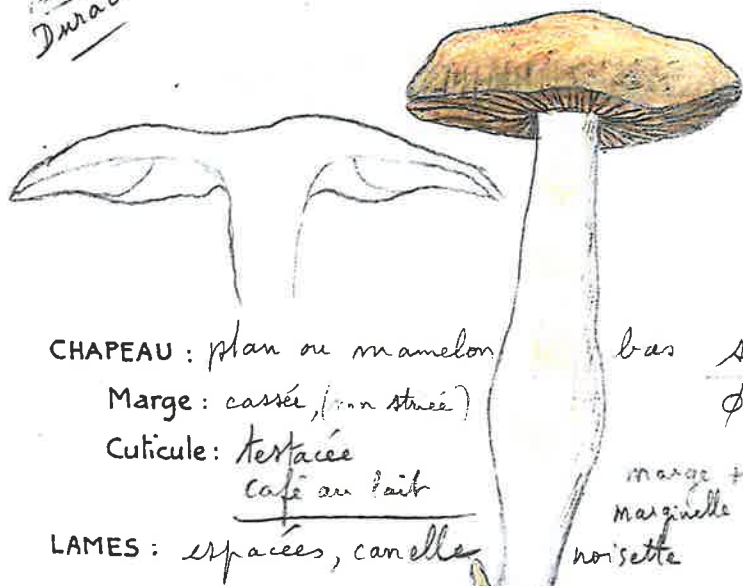 CHAPEAU : plan ou mamelon bas
Marge : cassée, (non striée)
Cuticule : testacée
café au lait
marge +
marginelle
LAMES : espacées, canelle noisette